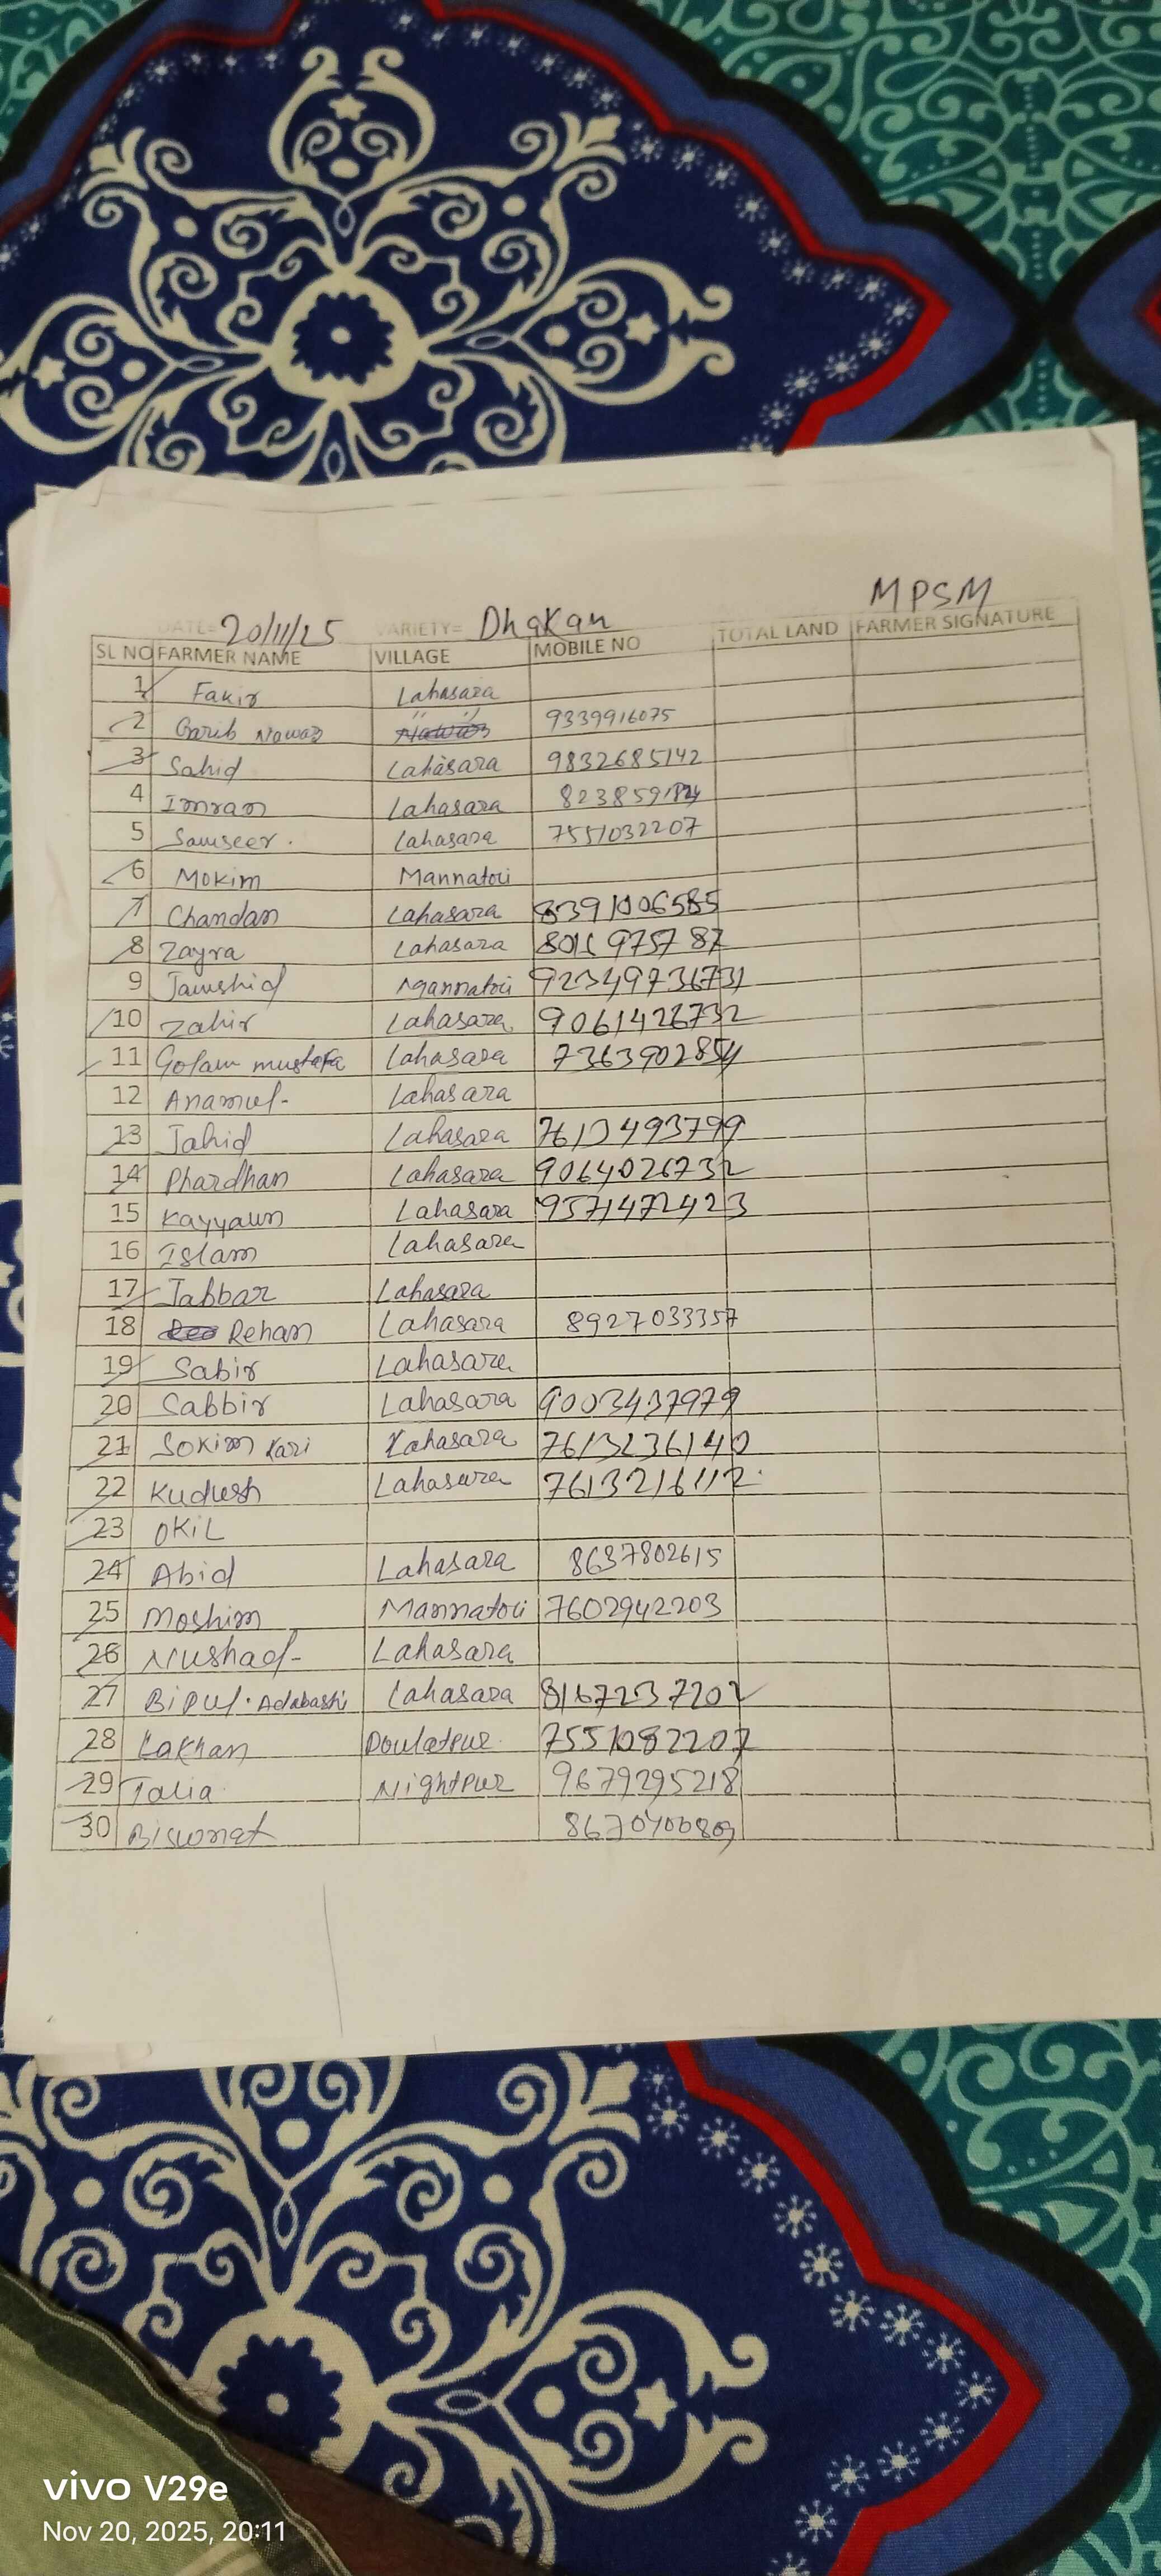 MPSM
DATE= 20/11/25 VARIETY= Dhakan
SL NO FARMER NAME VILLAGE MOBILE NO TOTAL LAND FARMER SIGNATURE
1 Fakir Lahasara
2 Garib Nawaz " " 9339916075
3 Sahid Lahasara 9832685142
4 Imran Lahasara
5 Samseer. Lahasara 7551032207
6 Mokim Mannatoli
7 Chandan Lahasara 8391006585
8 Zayra Lahasara 8016975787
9 Jamshid 9234973673
10 Zahir Lahasara 9061426732
11 Golam mustafa Lahasara 7363902854
12 Anamul- Lahasara
13 Jahid Lahasara 7613493799
14 Phardhan Lahasara 9064026732
15 Kayyaum Lahasara 9571472423
16 Islam Lahasara
17 Jabbar Lahasara
18 Rehan Lahasara 8927033357
19 Sabir Lahasara
20 Sabbir Lahasara 9003437979
21 Sokim Kari Lahasara 7613236140
22 Kudush Lahasara 7613216112
23 OKIL
24 Abid Lahasara 8637802615
25 Moshim Mannatoli 7602942203
26 Nushad- Lahasara
27 Bipul. Adabashi Lahasara 8167237202
28 Lakhan Doulatpur 7551082207
29 Talia Nightpur 9679295218
30 Biswonat
vivo V29e
Nov 20, 2025, 20:11